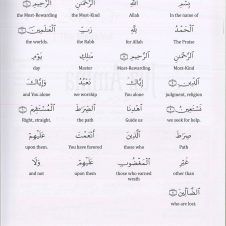 بِسْمِ اللَّهِ الرَّحْمَٰنِ الرَّحِيمِ
In the name of Allah the Most-Kind the Most-Rewarding
الْحَمْدُ لِلَّهِ رَبِّ الْعَالَمِينَ
The Praise for Allah the Rabb the worlds.
الرَّحْمَٰنِ الرَّحِيمِ مَالِكِ يَوْمِ
Most-Kind Most-Rewarding. Master day
الدِّينِ إِيَّاكَ نَعْبُدُ وَإِيَّاكَ
judgment, religion You alone we worship and You alone
نَسْتَعِينُ اهْدِنَا الصِّرَاطَ الْمُسْتَقِيمَ
we seek for help. Guide us the path Right, straight,
صِرَاطَ الَّذِينَ أَنْعَمْتَ عَلَيْهِمْ
Path those who You have favored upon them.
غَيْرِ الْمَغْضُوبِ عَلَيْهِمْ وَلَا
other than those who earned wrath upon them and not
الضَّالِّينَ
who are lost.